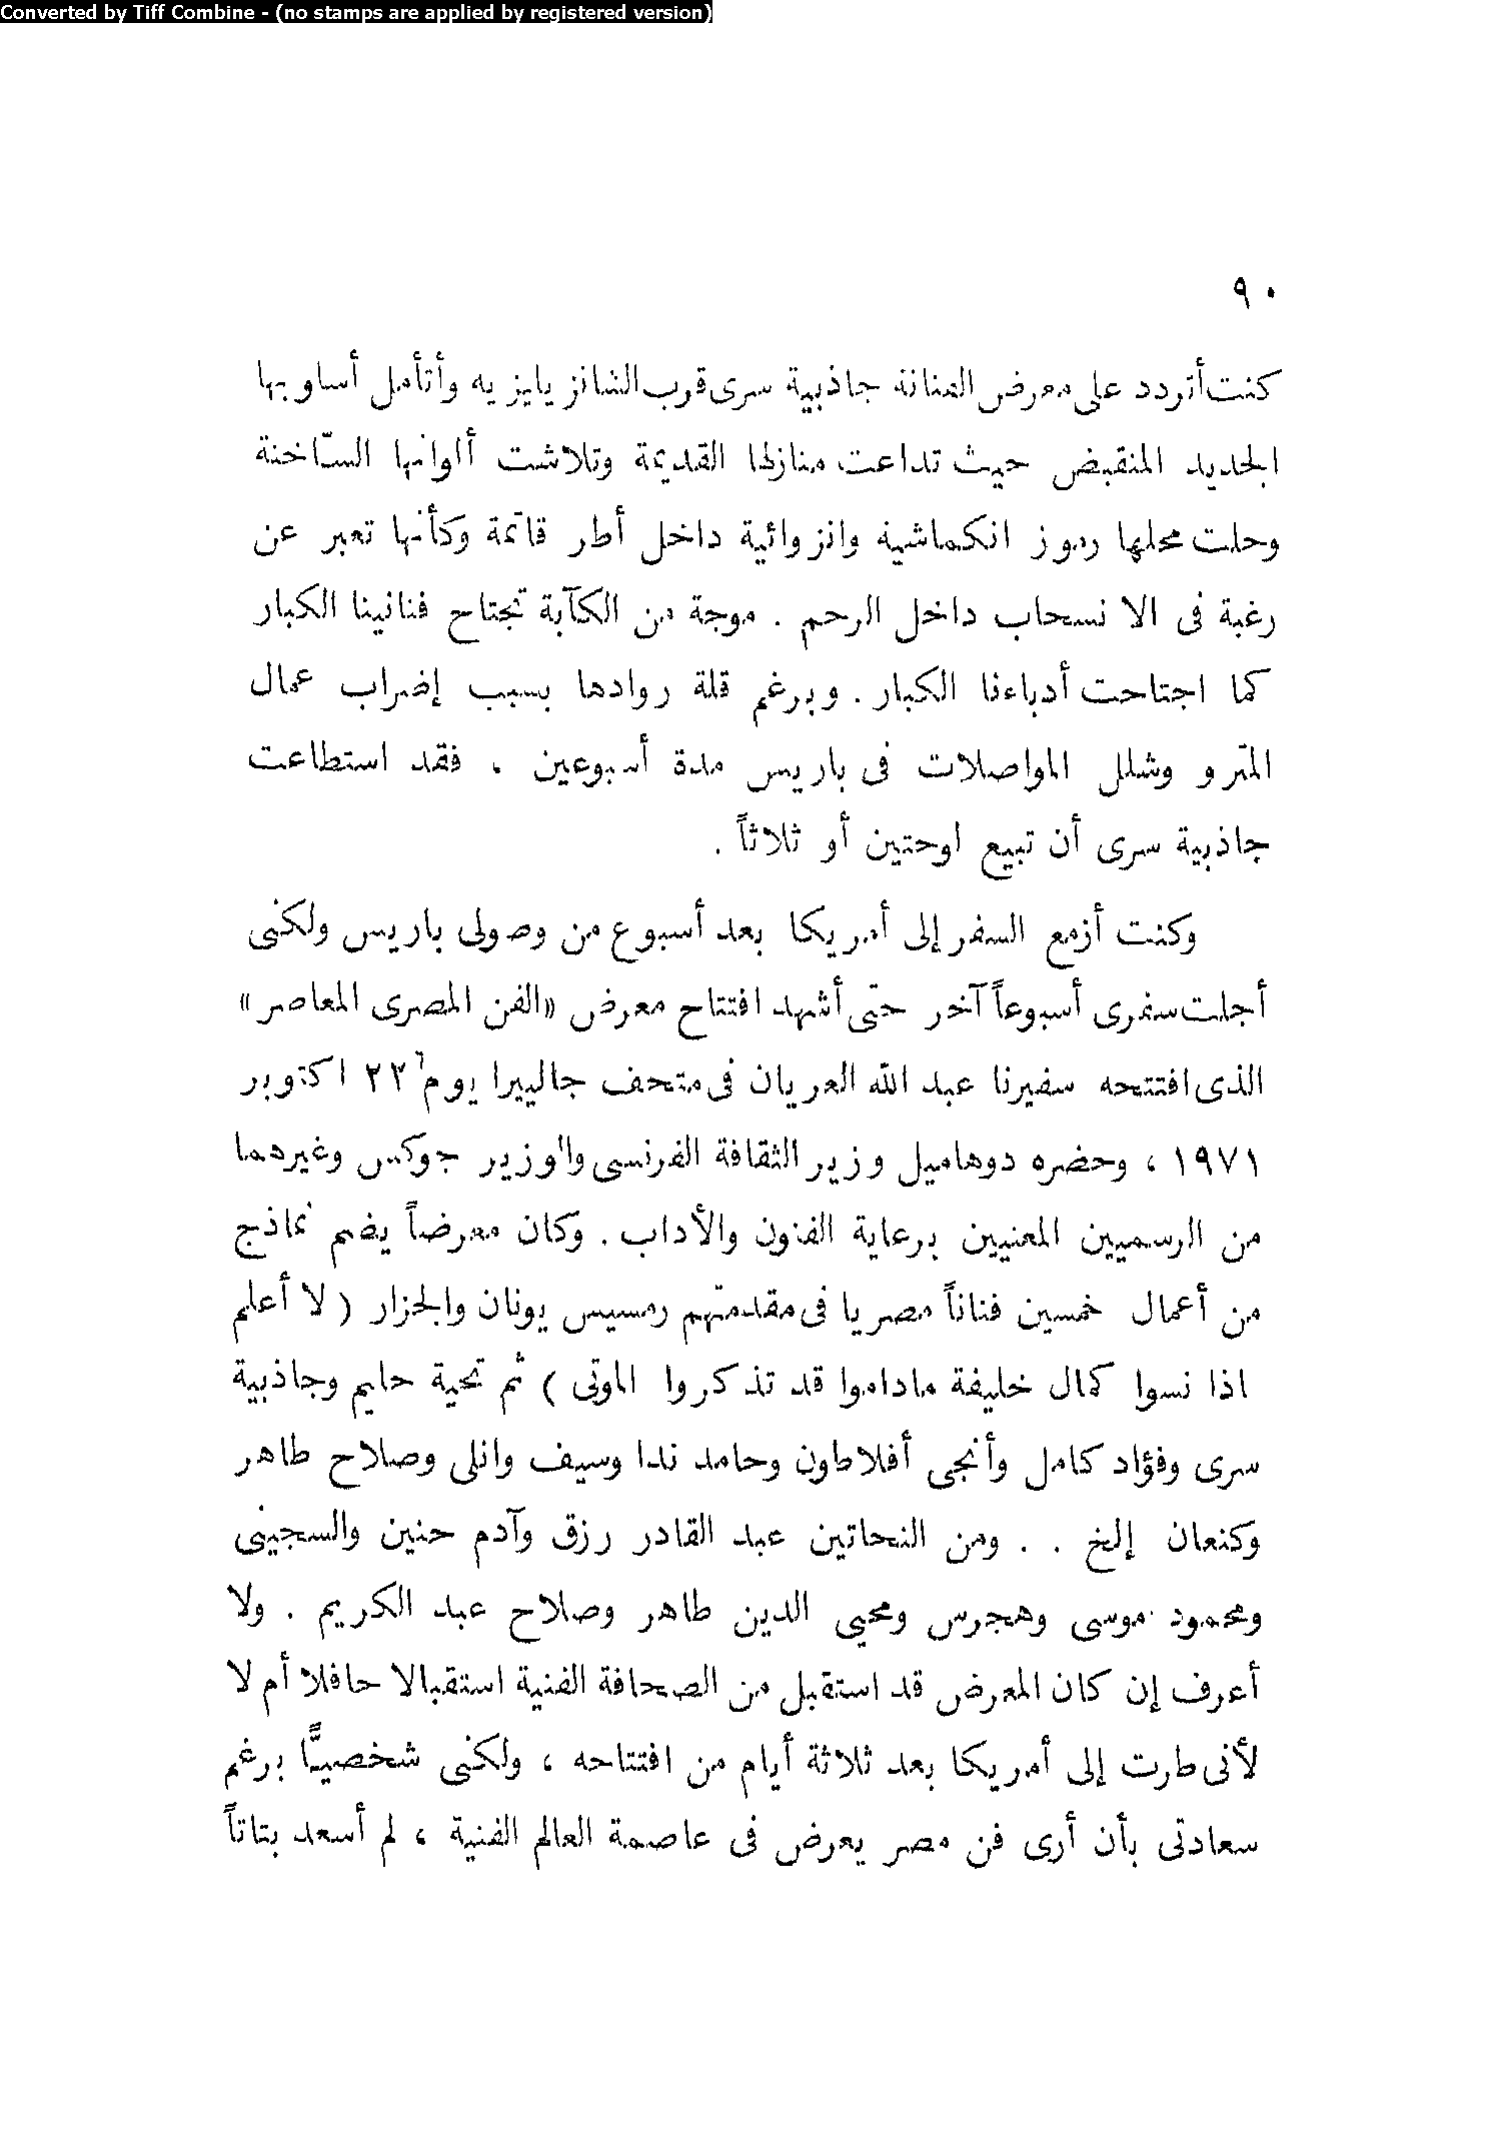 Converted by Tiff Combine - (no stamps are applied by registered version)
٩٠
كنت أتردد على معرض الفنانة جاذبية سرى قرب الشانز يايز يه وأتأمل أسلوبها
الجديد المنقبض حيث تداعت منازلها القديمة وتلاشت ألوانها السّاخنة
وحلت محلها رموز انكماشية وانزوائية داخل أطر قاتمة وكأنها تعبر عن
رغبة فى الانسحاب داخل الرحم . موجة من الكآبة تجتاح فنانينا الكبار
كما اجتاحت أدباءنا الكبار . وبرغم قلة روادها بسبب إضراب عمال
المترو وشلل المواصلات فى باريس مدة أسبوعين ، فقد استطاعت
جاذبية سرى أن تبيع لوحتين أو ثلاثاً .
وكنت أزمع السفر إلى أمريكا بعد أسبوع من وصولى باريس ولكنى
أجلت سفرى أسبوعاً آخر حتى أشهد افتتاح معرض «الفن المصرى المعاصر»
الذى افتتحه سفيرنا عبد الله العريان فى متحف جالييرا يوم ٢٢ اكتوبر
١٩٧١ ، وحضره دوهاميل وزير الثقافة الفرنسى والوزير جوكس وغيرهما
من الرسميين المعنيين برعاية الفنون والأداب . وكان معرضاً يضم نماذج
من أعمال خمسين فناناً مصريا فى مقدمتهم رمسيس يونان والجزار ( لا أعلم
اذا نسوا كمال خليفة ماداموا قد تذكروا الموتى ) ثم تحية حليم وجاذبية
سرى وفؤاد كامل وأنجى أفلاطون وحامد ندا وسيف وانلى وصلاح طاهر
وكنعان إلخ . . ومن النحاتين عبد القادر رزق وآدم حنين والسجينى
ومحمود موسى وهجرس ومحيى الدين طاهر وصلاح عبد الكريم . ولا
أعرف إن كان المعرض قد استقبل من الصحافة الفنية استقبالا حافلا أم لا
لأنى طرت إلى أمريكا بعد ثلاثة أيام من افتتاحه ، ولكنى شخصيًّا برغم
سعادتى بأن أرى فن مصر يعرض فى عاصمة العالم الفنية ، لم أسعد بتاتاً